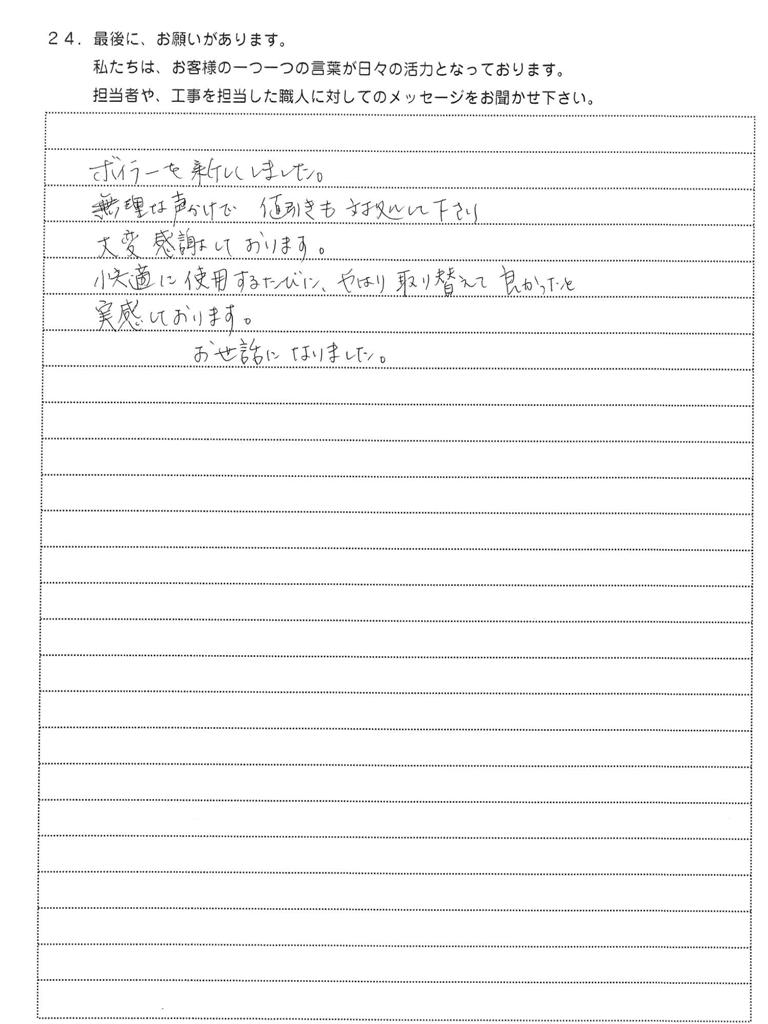 24. 最後に、お願いがあります。
私たちは、お客様の一つ一つの言葉が日々の活力となっております。
担当者や、工事を担当した職人に対してのメッセージをお聞かせ下さい。
ボイラーを新しくしました。
無理な声かけで 値引きも対処して下さり
大変感謝しております。
快適に使用するたびに、やはり取り替えて良かったと
実感しております。
お世話になりました。